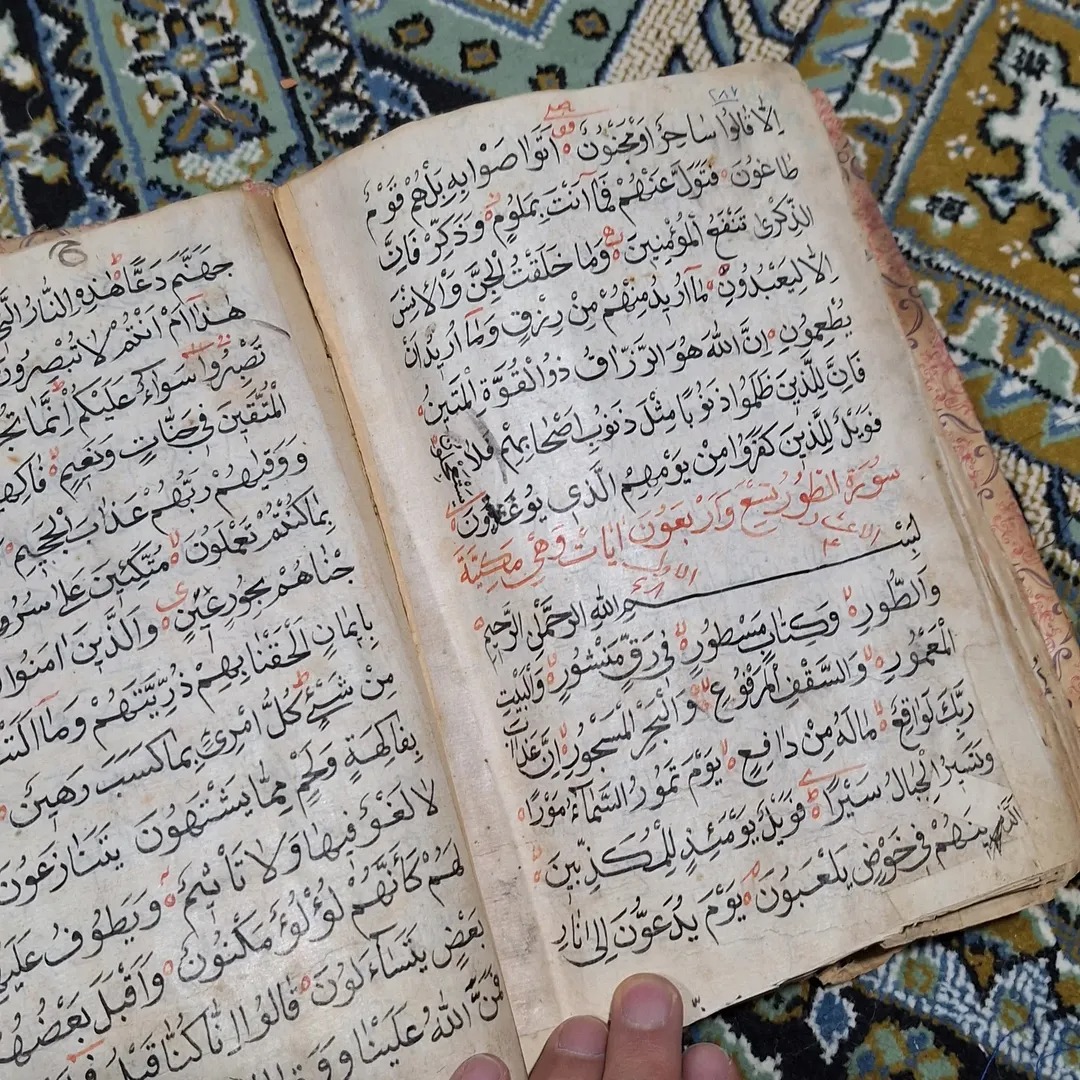 ٢٨٧
الَّا قَالُوا سَاحِرٌ اَوْ مَجْنُونٌ اَتَوَاصَوْا بِهِ بَلْ هُمْ قَوْمٌ
طَاغُونَ فَتَوَلَّ عَنْهُمْ فَمَا اَنْتَ بِمَلُومٍ وَذَكِّرْ فَاِنَّ
الذِّكْرٰى تَنْفَعُ الْمُؤْمِنِينَ وَمَا خَلَقْتُ الْجِنَّ وَالْاِنْسَ
اِلَّا لِيَعْبُدُونِ مَا اُرِيدُ مِنْهُمْ مِنْ رِزْقٍ وَمَا اُرِيدُ اَنْ
يُطْعِمُونِ اِنَّ اللّٰهَ هُوَ الرَّزَّاقُ ذُو الْقُوَّةِ الْمَتِينُ
فَاِنَّ لِلَّذِينَ ظَلَمُوا ذَنُوبًا مِثْلَ ذَنُوبِ اَصْحَابِهِمْ فَلَا
يَسْتَعْجِلُونِ
فَوَيْلٌ لِلَّذِينَ كَفَرُوا مِنْ يَوْمِهِمُ الَّذِى يُوعَدُونَ
سُورَةُ الطُّورِ تِسْعٌ وَاَرْبَعُونَ اٰيَاتٍ وَهِىَ مَكِّيَّةٌ
بِسْمِ اللّٰهِ الرَّحْمٰنِ الرَّحِيمِ
وَالطُّورِ وَكِتَابٍ مَسْطُورٍ فِى رَقٍّ مَنْشُورٍ وَالْبَيْتِ
الْمَعْمُورِ وَالسَّقْفِ الْمَرْفُوعِ وَالْبَحْرِ الْمَسْجُورِ اِنَّ عَذَابَ
رَبِّكَ لَوَاقِعٌ مَا لَهُ مِنْ دَافِعٍ يَوْمَ تَمُورُ السَّمَاءُ مَوْرًا
وَتَسِيرُ الْجِبَالُ سَيْرًا فَوَيْلٌ يَوْمَئِذٍ لِلْمُكَذِّبِينَ
الَّذِينَ هُمْ فِى خَوْضٍ يَلْعَبُونَ يَوْمَ يُدَعُّونَ اِلٰى نَارِ
جَهَنَّمَ دَعًّا هٰذِهِ النَّارُ
هٰذَا اَمْ اَنْتُمْ لَا تُبْصِرُونَ
تَصْبِرُوا سَوَاءٌ عَلَيْكُمْ اِنَّمَا
الْمُتَّقِينَ فِى جَنَّاتٍ وَنَعِيمٍ
وَوَقٰيهُمْ رَبُّهُمْ عَذَابَ الْجَحِيمِ
بِمَا كُنْتُمْ تَعْمَلُونَ مُتَّكِئِينَ عَلٰى سُرُرٍ
جْنَاهُمْ بِحُورٍ عِينٍ وَالَّذِينَ اٰمَنُوا
بِاِيمَانٍ اَلْحَقْنَا بِهِمْ ذُرِّيَّتَهُمْ وَمَا
مِنْ شَىْءٍ كُلُّ امْرِئٍ بِمَا كَسَبَ رَهِينٌ
بِفَاكِهَةٍ وَلَحْمٍ مِمَّا يَشْتَهُونَ يَتَنَازَعُونَ
لَا لَغْوٌ فِيهَا وَلَا تَأْثِيمٌ وَيَطُوفُ
لَهُمْ كَاَنَّهُمْ لُؤْلُؤٌ مَكْنُونٌ وَاَقْبَلَ بَعْضُهُمْ
بَعْضٍ يَتَسَاءَلُونَ قَالُوا اِنَّا كُنَّا قَبْلُ
فَمَنَّ اللّٰهُ عَلَيْنَا